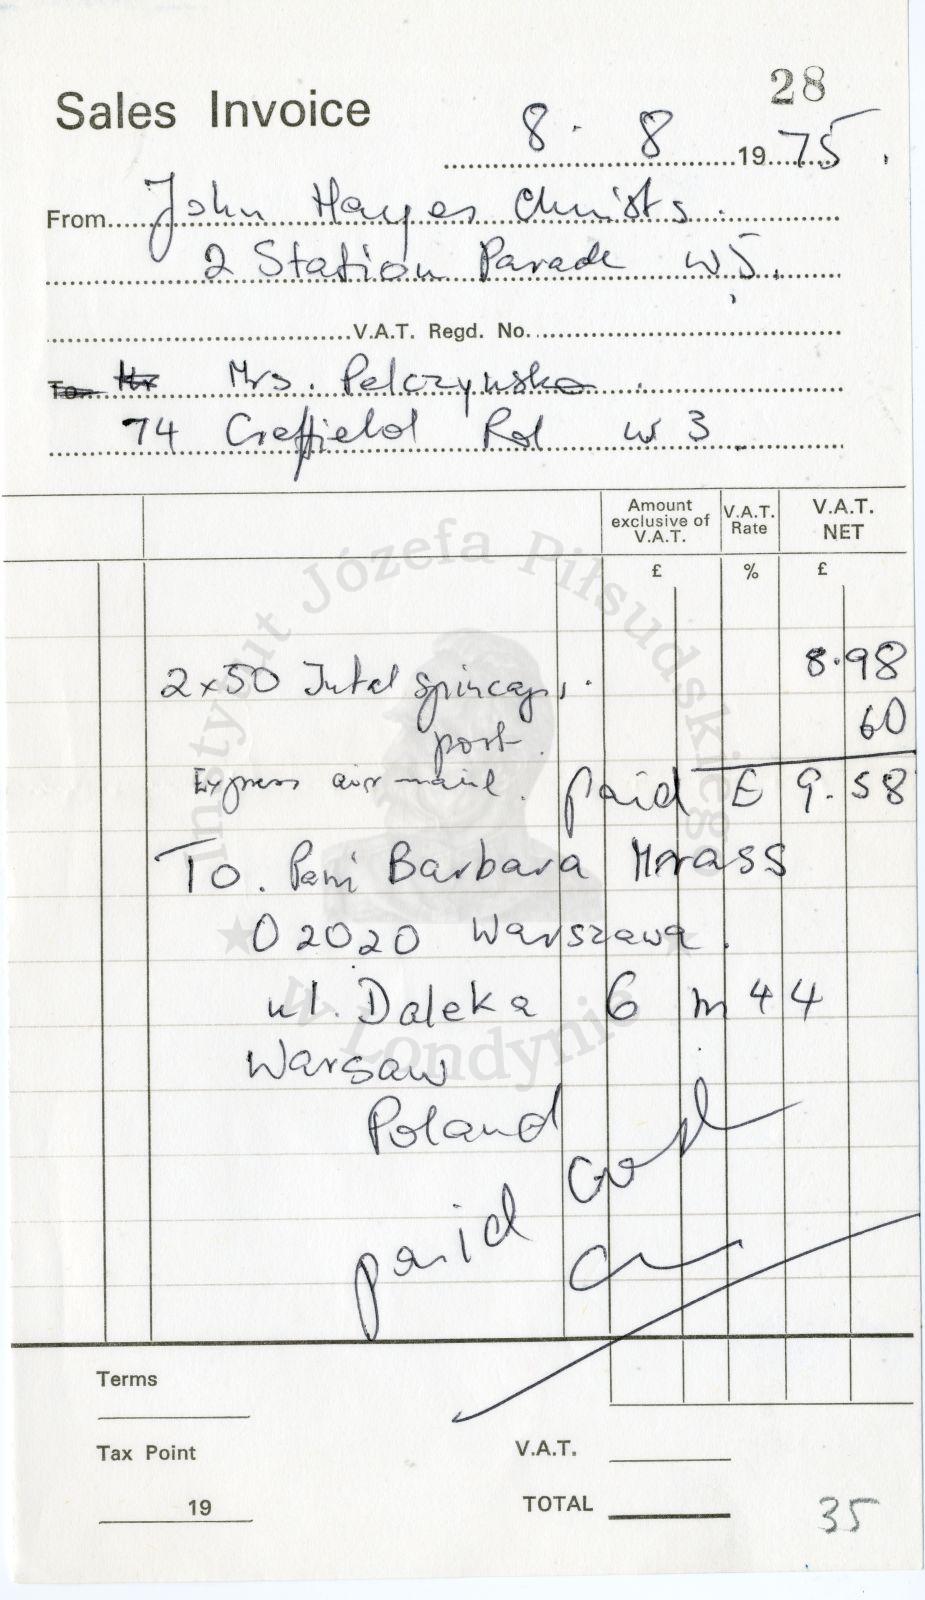 28
Sales Invoice
8 . 8 1975.
From John Hayes Chemists.
2 Station Parade W5.
V.A.T. Regd. No.
To Mr Mrs. Pelczynska.
74 Creffield Rd W3
Amount exclusive of V.A.T. V.A.T. Rate V.A.T. NET
£ % £
2x50 Intal spincaps. 8.98
post. 60
Express air mail. paid £ 9.58
To. Pani Barbara Mrass
02020 Warszawa.
ul. Daleka 6 m 44
Warsaw
Poland
paid
Terms
Tax Point V.A.T.
19 TOTAL
35
Instytut Józefa Piłsudskiego
w Londynie